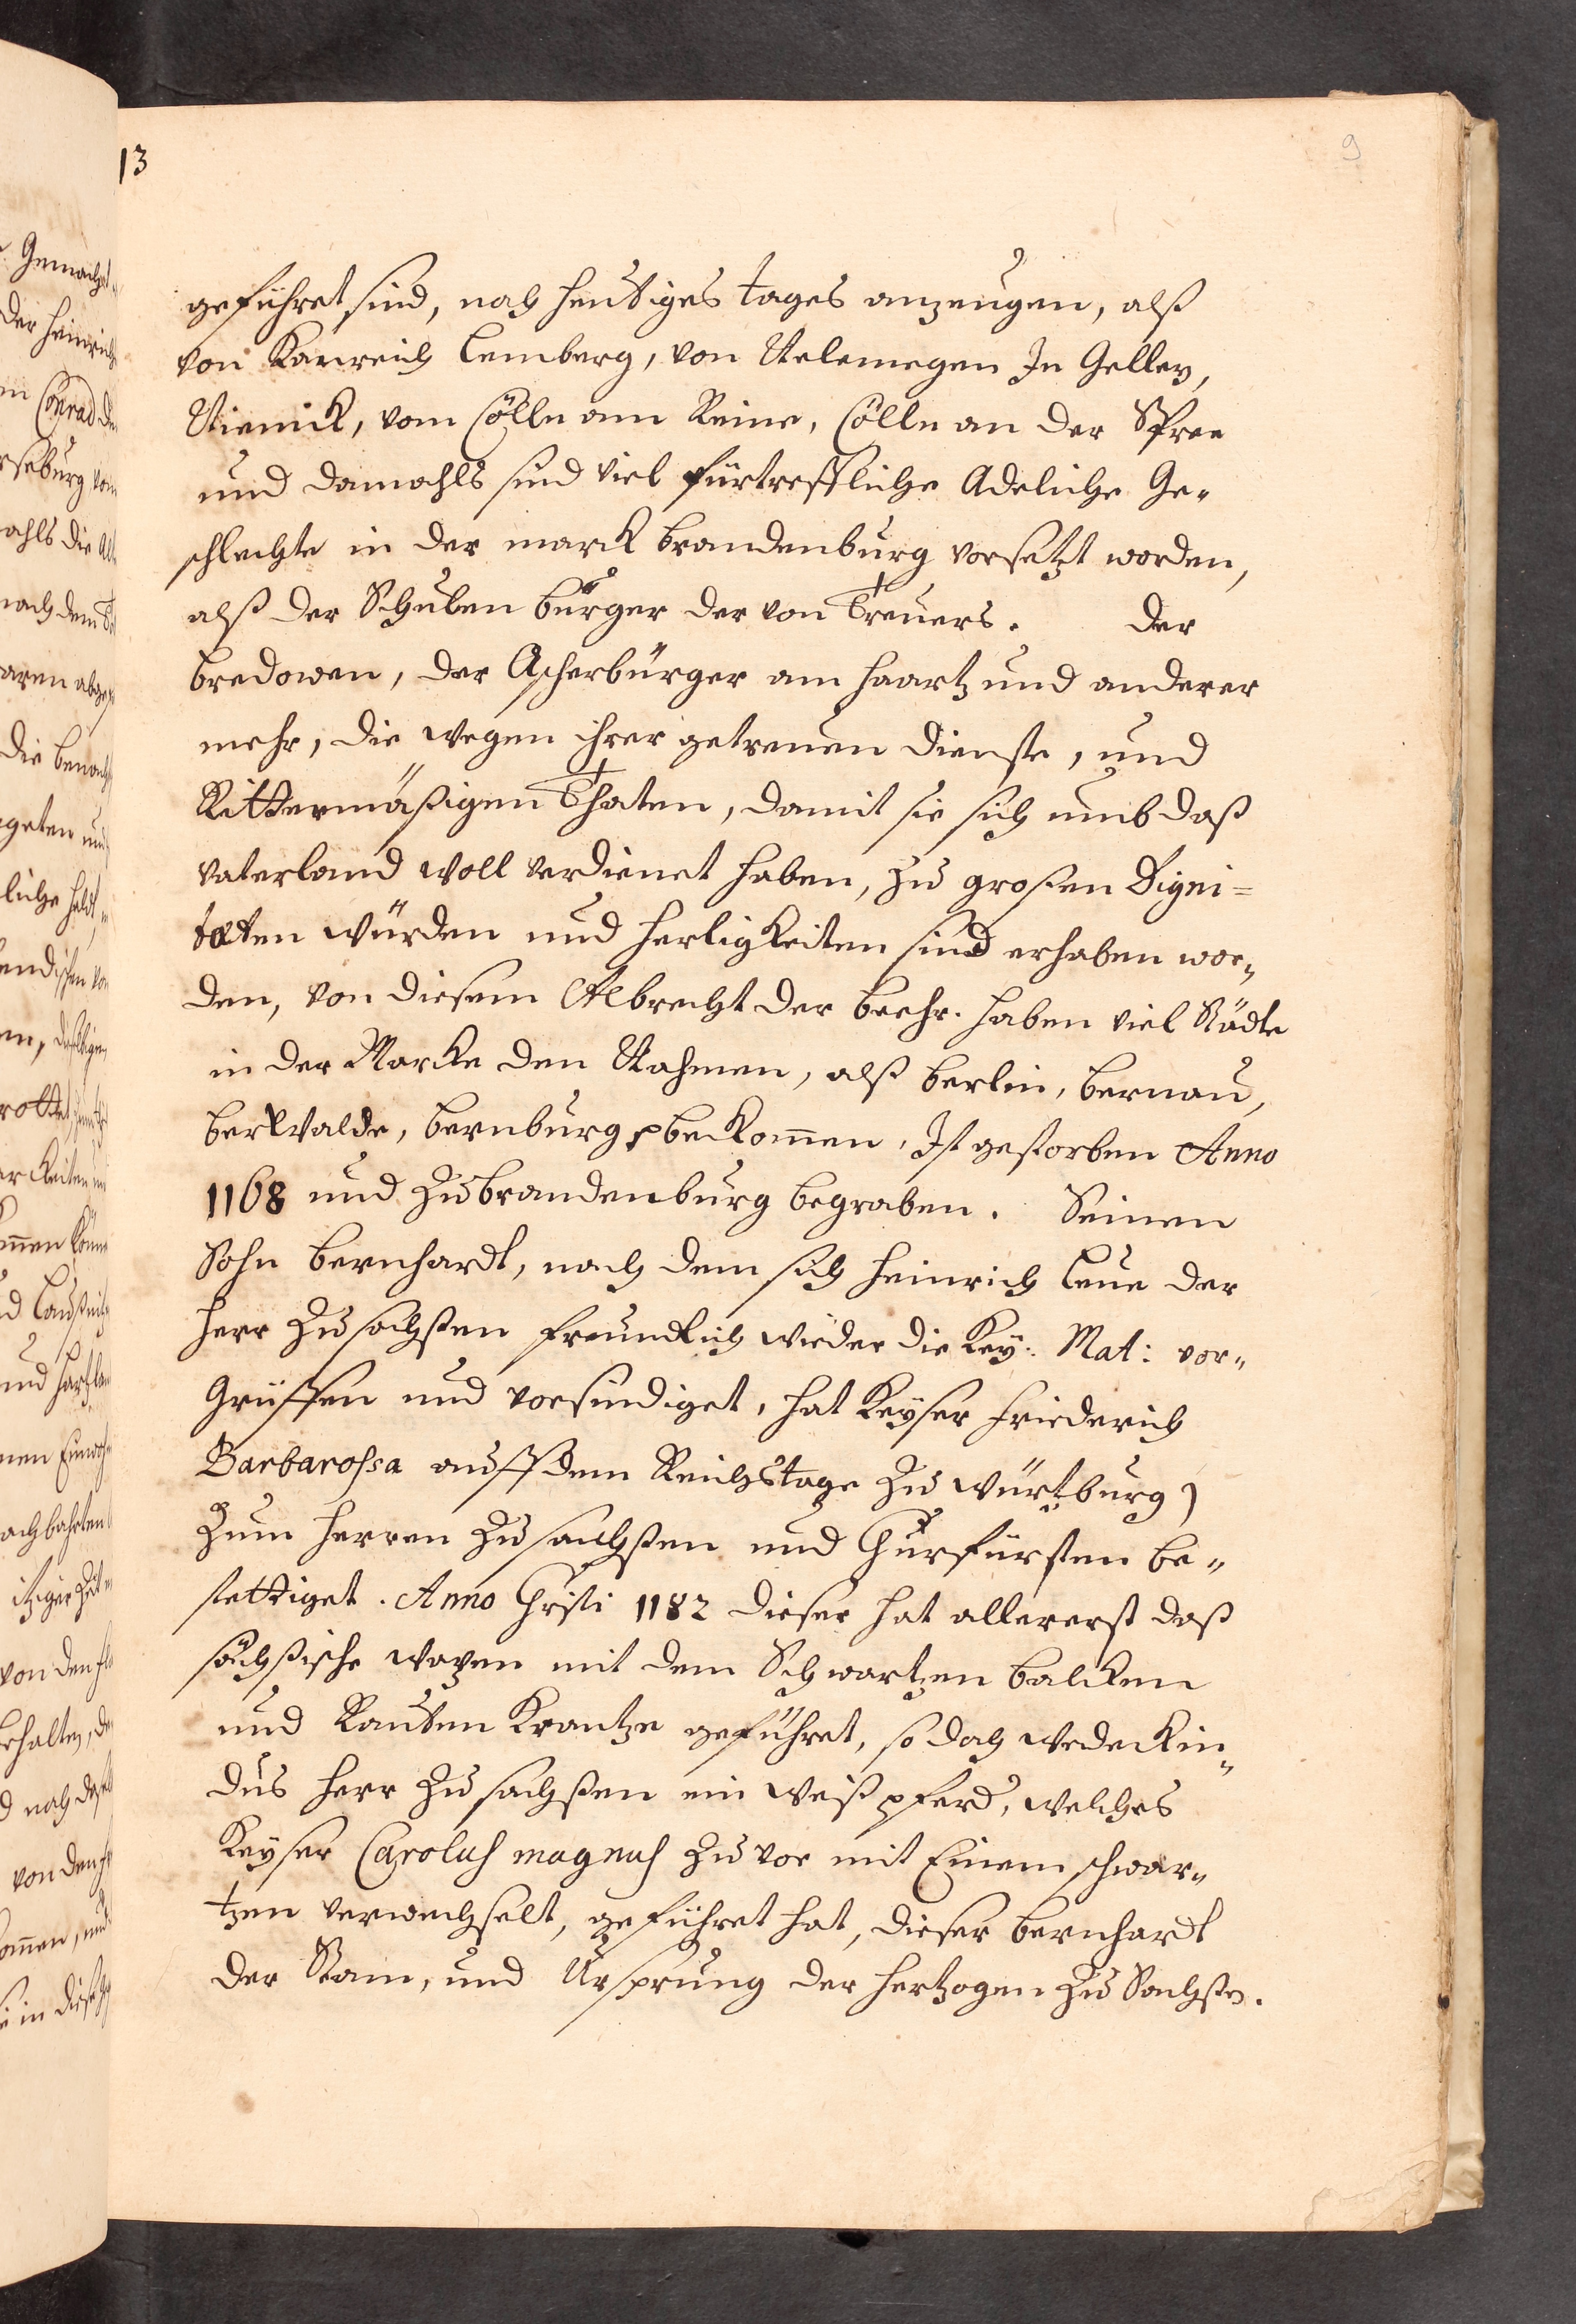 13
9
geführet sind, noch heutiges tages anzeugen, alß
von Kamrich Lemberg, von Nelemegen In Geller,
Niemick, vom Cölln am Reine, Cölln an der Spree
und damahls sind viel fürtreffliche Adeliche Ge-
schlechte in der marck brandenburg vorsetzt worden,
alß der Schulen bürger der von Treuers. der
bredowen, der Ascherbürger am Haartz und anderer
mehr, die wegen ihrer getreuen dienste, und
Rittermäßigen Thaten, damit sie sich umb daß
vaterland woll verdienet haben, zu großen Digni=
taten würden und herligkeiten sind erhaben wor-
den, von diesem Albrecht der beehr. haben viel Städte
in der Marcke den Nahmen, alß berlin, bernau,
berwalde, bernburg bekom̄en, Ist gestorben Anno
1168 und zu brandenburg begraben. Seinen
Sohn bernhardt, nach dem sich Heinrich Leue der
Herr zu sachßen freundlich wieder die Key: Mat: vor-
Griffen und vorsündiget, hat Keyser Friederich
Barbarossa auff dem Reichstage zu würtzburg)
zum Herren zu sachßen und Churfürsten be-
stettiget. Anno Christi 1182 dieser hat allererst daß
sächßische wapen mit dem Schwartzen balcken
und Rauten Krantze geführet, so doch wedeckin-
dus Herr zu sachßen ein weiß pferd, welches
Keyser Carolus magnus zu vor mit Einem schwar-
tzen verwechselt, geführet hat, dieser bernhardt
der Stam, und Ursprung der Hertzogen zu Sachßen.